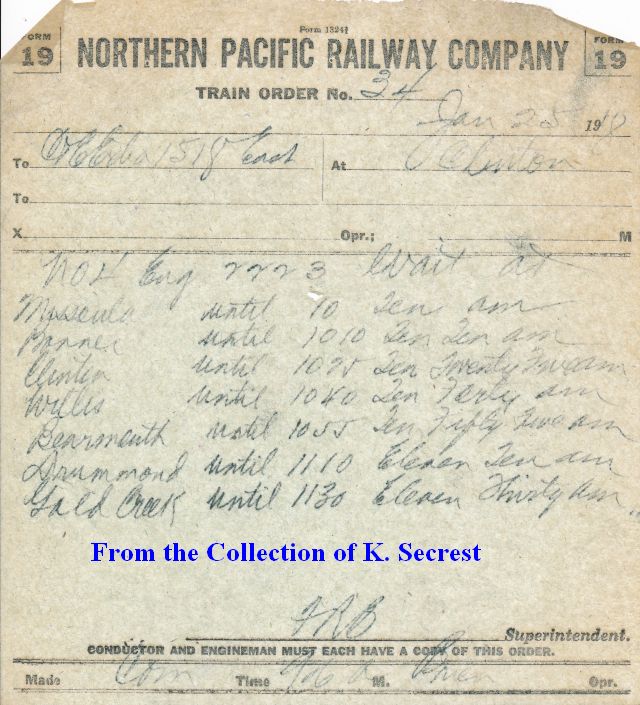 Form 1324½
FORM 19 NORTHERN PACIFIC RAILWAY COMPANY FORM 19
TRAIN ORDER No. 34
Jan 25 19
To C&E Extra 1518 East At Clinton
To
X Opr.; M
No 4 Eng 2223 Wait at
Missoula until 10 Ten am
Bonner until 1010 Ten Ten am
Clinton until 1025 Ten Twenty Five am
Willis until 1040 Ten Forty am
Bearmouth until 1055 Ten Fifty Five am
Drummond until 1110 Eleven Ten am
Gold Creek until 1130 Eleven Thirty am
From the Collection of K. Secrest
Superintendent.
CONDUCTOR AND ENGINEMAN MUST EACH HAVE A COPY OF THIS ORDER.
Made Com Time M. Opr.